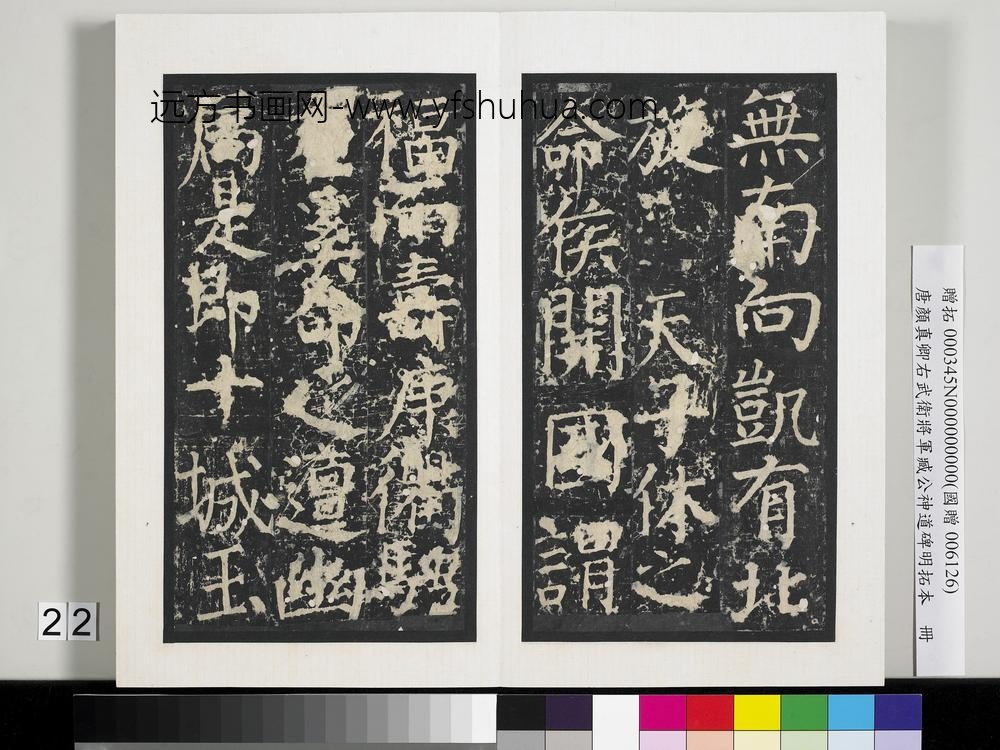 贈拓 000345N000000000(國贈 006126)
唐顏真卿右武衛將軍臧公神道碑明拓本 冊
無南向凱有北
旋天子休之
命侯開國謂
福而壽康騁
奚命之邅幽
是即十城玉
远方书画网-www.yfshuhua.com
22